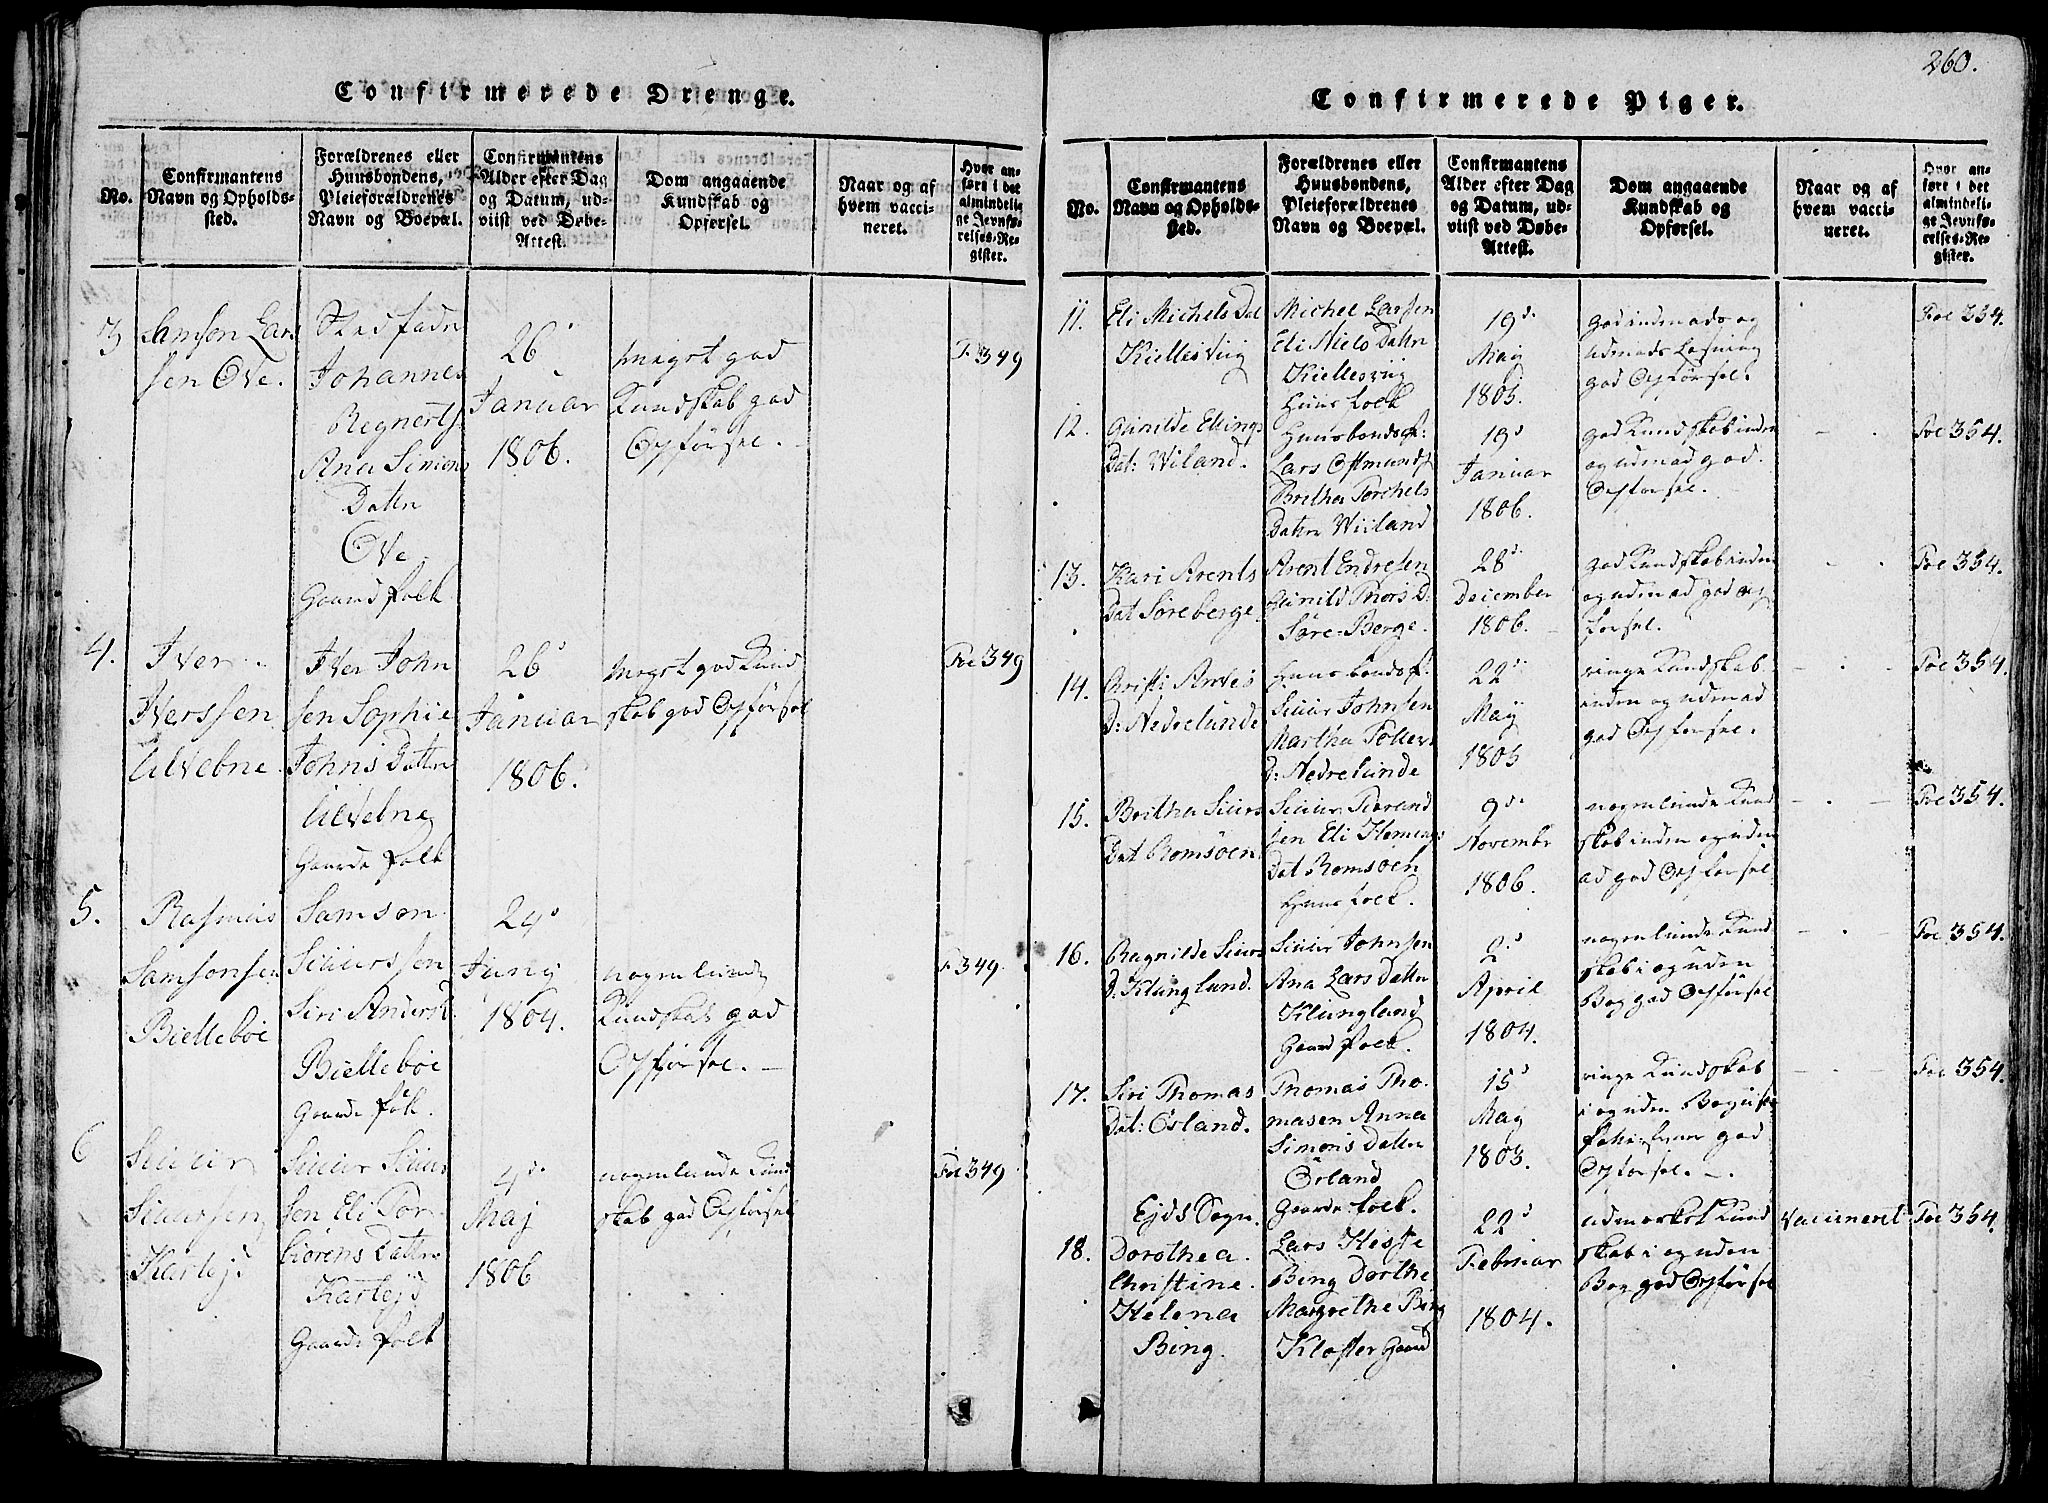 260.
Confirmerede Drenge.
No.
Confirmantens
Navn og Opholds-
sted.
Forældrenes eller
Huusbondens,
Pleieforældrenes
Navn og Boepæl.
Confirmantens
Alder efter Dag
og Datum, ud-
viist ved Døbe-
Attest.
Dom angaaende
Kundskab og
Opførsel.
Naar og af
hvem vacci-
neret.
Hvor an-
ført i det
almindeli-
ge Jevnfø-
relses-Re-
gister.
3
Samson Lars
sen Ove.
Stedfadn
Johannes
Regnerts
Ana Simons
Dattn
Ove
Gaard folk
26
Januar
1806.
meget god
Kundskab god
Opførsel.
F 349
4.
Iver
Iverssen
Ulvebne
Iver John
sen Sophie
Johns Dattn
Ulvebne
Gaarde folk
26
Januar
1806.
meget god Kund
skab god Opførsel
Foe 349
5.
Rasmus
Samsonsen
Biellebøe
Samson
Siuurssen
Siri Andersd
Biellebøe
Gaarde folk.
24
Juny
1804.
nogenlunde
Kundskab god
Opførsel.
F 349
6
Siuur
Siuurssen
Karlejd
Siuur Siuur
sen Eli Tor-
biorens Dattn
Karlejd
Gaarde folk
4
Maj
1806
nogenlunde Kund
skab god Opførsel
Foe 349
Confirmerede Piger.
No.
Confirmantens
Navn og Opholds-
sted.
Forældrenes eller
Huusbondens,
Pleieforældrenes
Navn og Boepæl.
Confirmantens
Alder efter Dag
og Datum, ud-
viist ved Døbe-
Attest.
Dom angaaende
Kundskab og
Opførsel.
Naar og af
hvem vacci-
neret.
Hvor an-
ført i det
almindeli-
ge Jevnfø-
relses-Re-
gister.
11.
Eli Michels Dat
Kiellesviig
Michel Larsen
Eli Niels Dattn
Kiellesviig
Huus folk
19
May
1805.
god indenads og
udenads Læsning
god Opførsel.
Foe 354.
12.
Gunilde Ellings
Dat: Wiland.
Huusbondsf:
Lars Ostmunds
Bretha Torchels
Dattn Wiiland
19
Januar
1806.
god Kundskab inden
og udenad god
Opførsel.
Foe 354.
13.
Kari Arents
Dat Søreberge
Arent Endresen
Gunild Thors D:
Søre-Berge.
28
December
1806.
god Kundskab inden
og udenad god Op
førsel.
Foe 354.
14.
Christi Arves
D: Nedrelunde
Huusbondsf:
Siuur Johnsen
Martha Tollevs
D: Nedrelunde
22
May
1805
ringe Kundskab
inden og udenad
god Opførsel.
Foe 354.
15.
Bertha Siuurs
Dat Romsøen
Siuur Torand
sen Eli Flemings
Dat Romsøen
Huus folk.
9
Novembr
1806.
nogenlunde Kund
skab inden og uden
ad god Opførsel
Foe 354.
16.
Ragnilde Siuurs
D: Klungland.
Siuur Johnsen
Ana Lars Dattn
Klungland
Gaard folk.
2
April
1804.
nogenlunde Kund
skab i og uden
Bog god Opførsel
Foe 354.
17.
Siri Thomas
Dat: Orland.
Ejds Sogn.
Thomas Tho-
masen Anna
Simons Dattn
Orland
Gaarde folk.
15
May
1803.
ringe Kundskab
i og uden Bog
god
Opførsel.
Foe 354.
18.
Dorothea
Christine
Helena
Bing.
Lars Hesse
Bing Dorthe
Margrethe Bing
Kloster Gaard
22
Februar
1804.
udmærket Kund
skab i og uden
Bog god Opførsel
Vaccineret
Foe 354.